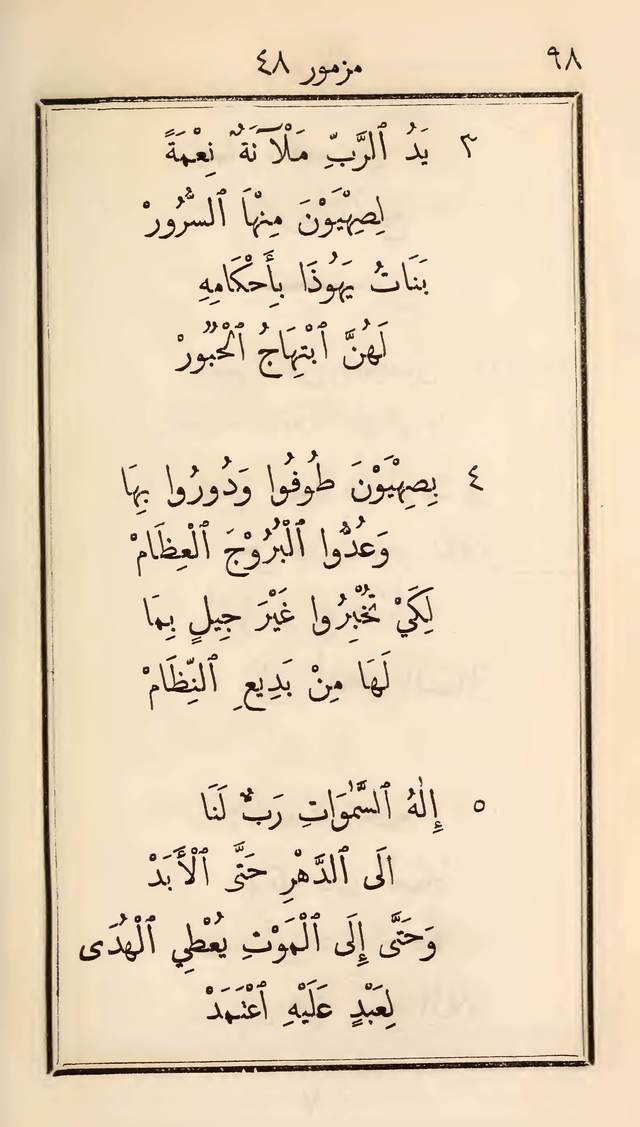 ٩٨ مزمور ٤٨
٣ يَدُ ٱلرَّبِّ مَلْآنَةٌ نِعْمَةً
لِصِهْيَوْنَ مِنْهَا ٱلسُّرُورْ
بَنَاتُ يَهُوذَا بِأَحْكَامِهِ
لَهُنَّ ٱبْتِهَاجُ ٱلْحُبُورْ
٤ بِصِهْيَوْنَ طُوفُوا وَدُورُوا بِهَا
وَعُدُّوا ٱلْبُرُوْجَ ٱلْعِظَامْ
لِكَيْ تُخْبِرُوا غَيْرَ جِيلٍ بِمَا
لَهَا مِنْ بَدِيعِ ٱلنِّظَامْ
٥ إِلٰهُ ٱلسَّمٰوَاتِ رَبٌّ لَنَا
الَى ٱلدَّهْرِ حَتَّى ٱلْأَبَدْ
وَحَتَّى إِلَى ٱلْمَوْتِ يُعْطِي ٱلْهُدَى
لِعَبْدٍ عَلَيْهِ ٱعْتَمَدْ